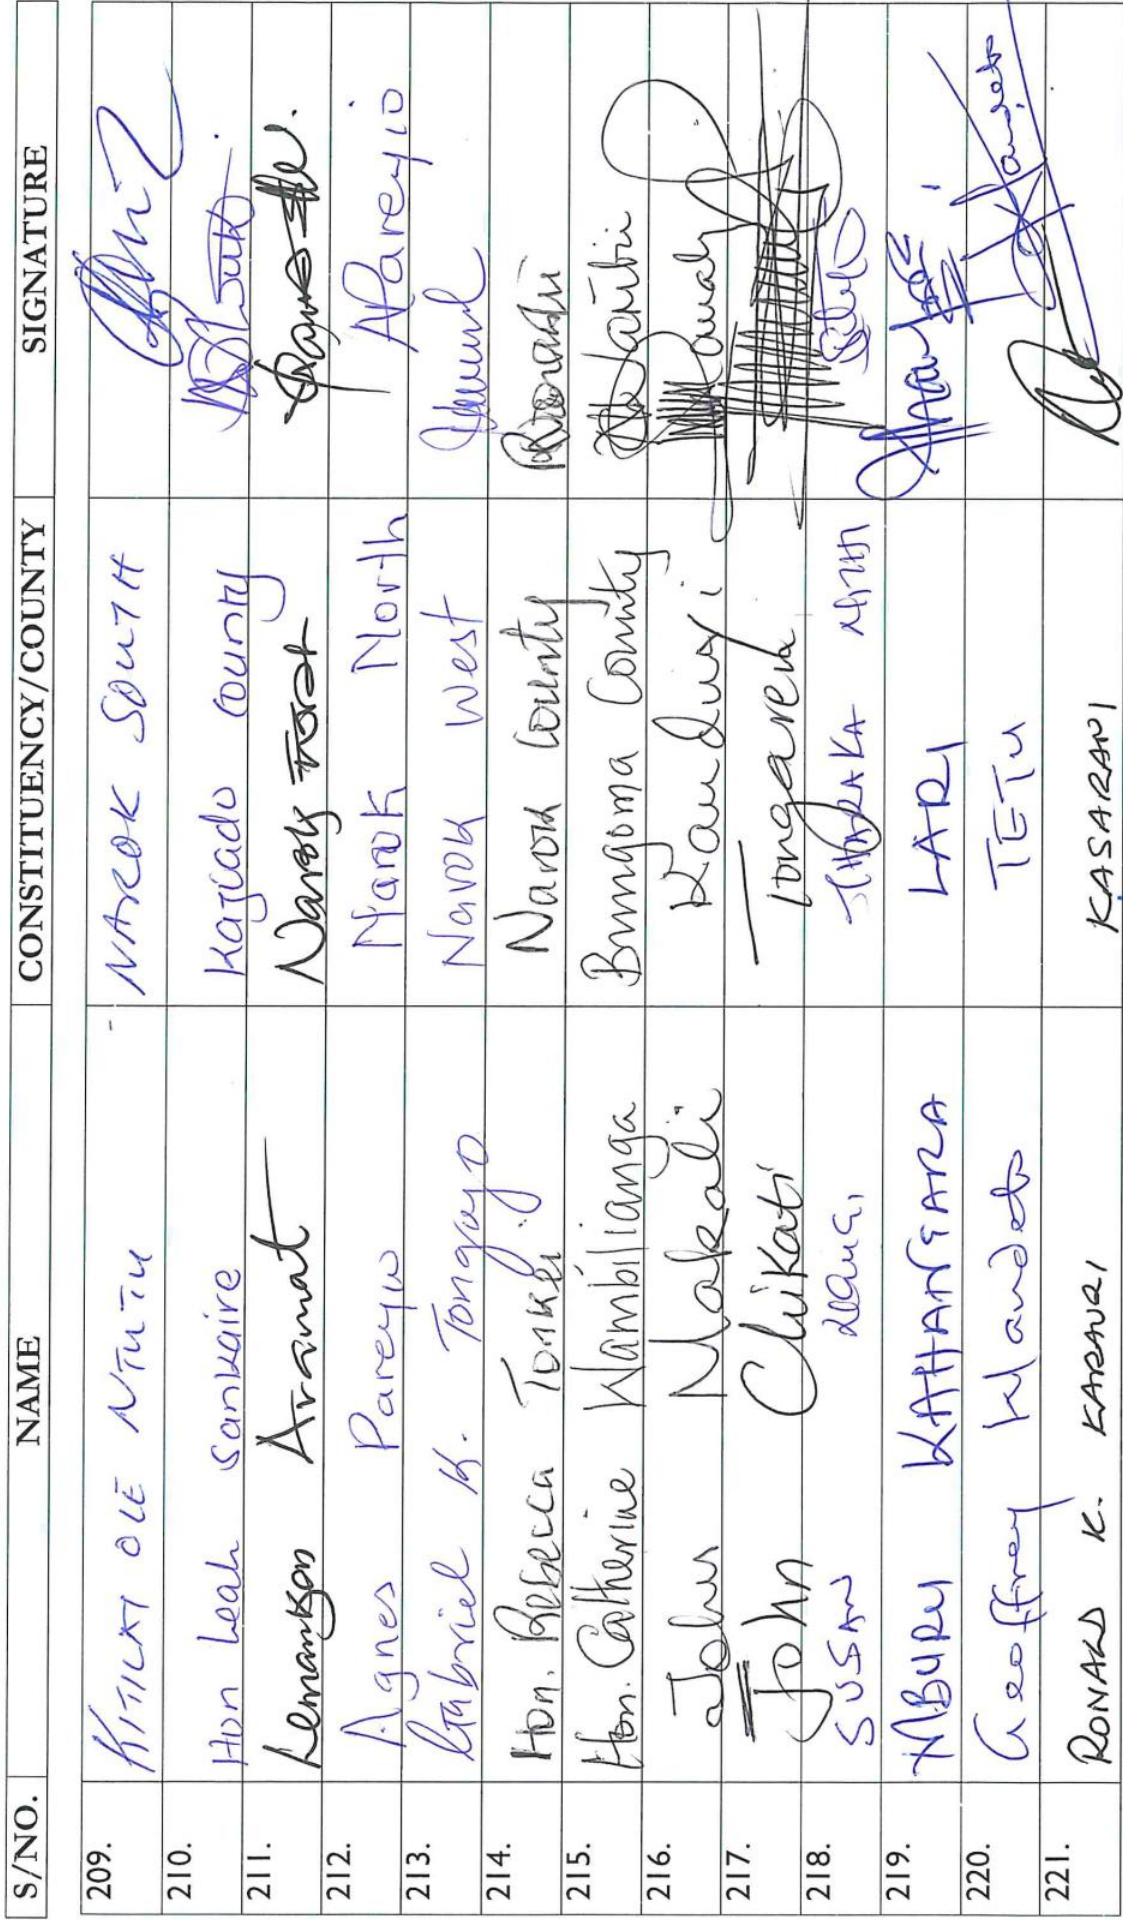 S/NO. NAME CONSTITUENCY/COUNTY SIGNATURE
209. KITILAI OLE NTUTU NAROK SOUTH
210. Hon Leah Sankaire Kajiado County
211. Lemanken Aramat Narok East
212. Agnes Pareyio Narok North APareyio
213. Gabriel K. Tongoyo Narok West
214. Hon. Rebecca Tonkei Narok County
215. Hon. Catherine Wambilianga Bungoma County
216. John Makali Kanduyi
217. John Chikati Tongaren
218. SUSAN THARAKA NITHI
219. MBURU KAHANGARA LARI
220. Geoffrey Wandeto TETU
221. RONALD K. KARAURI KASARANI